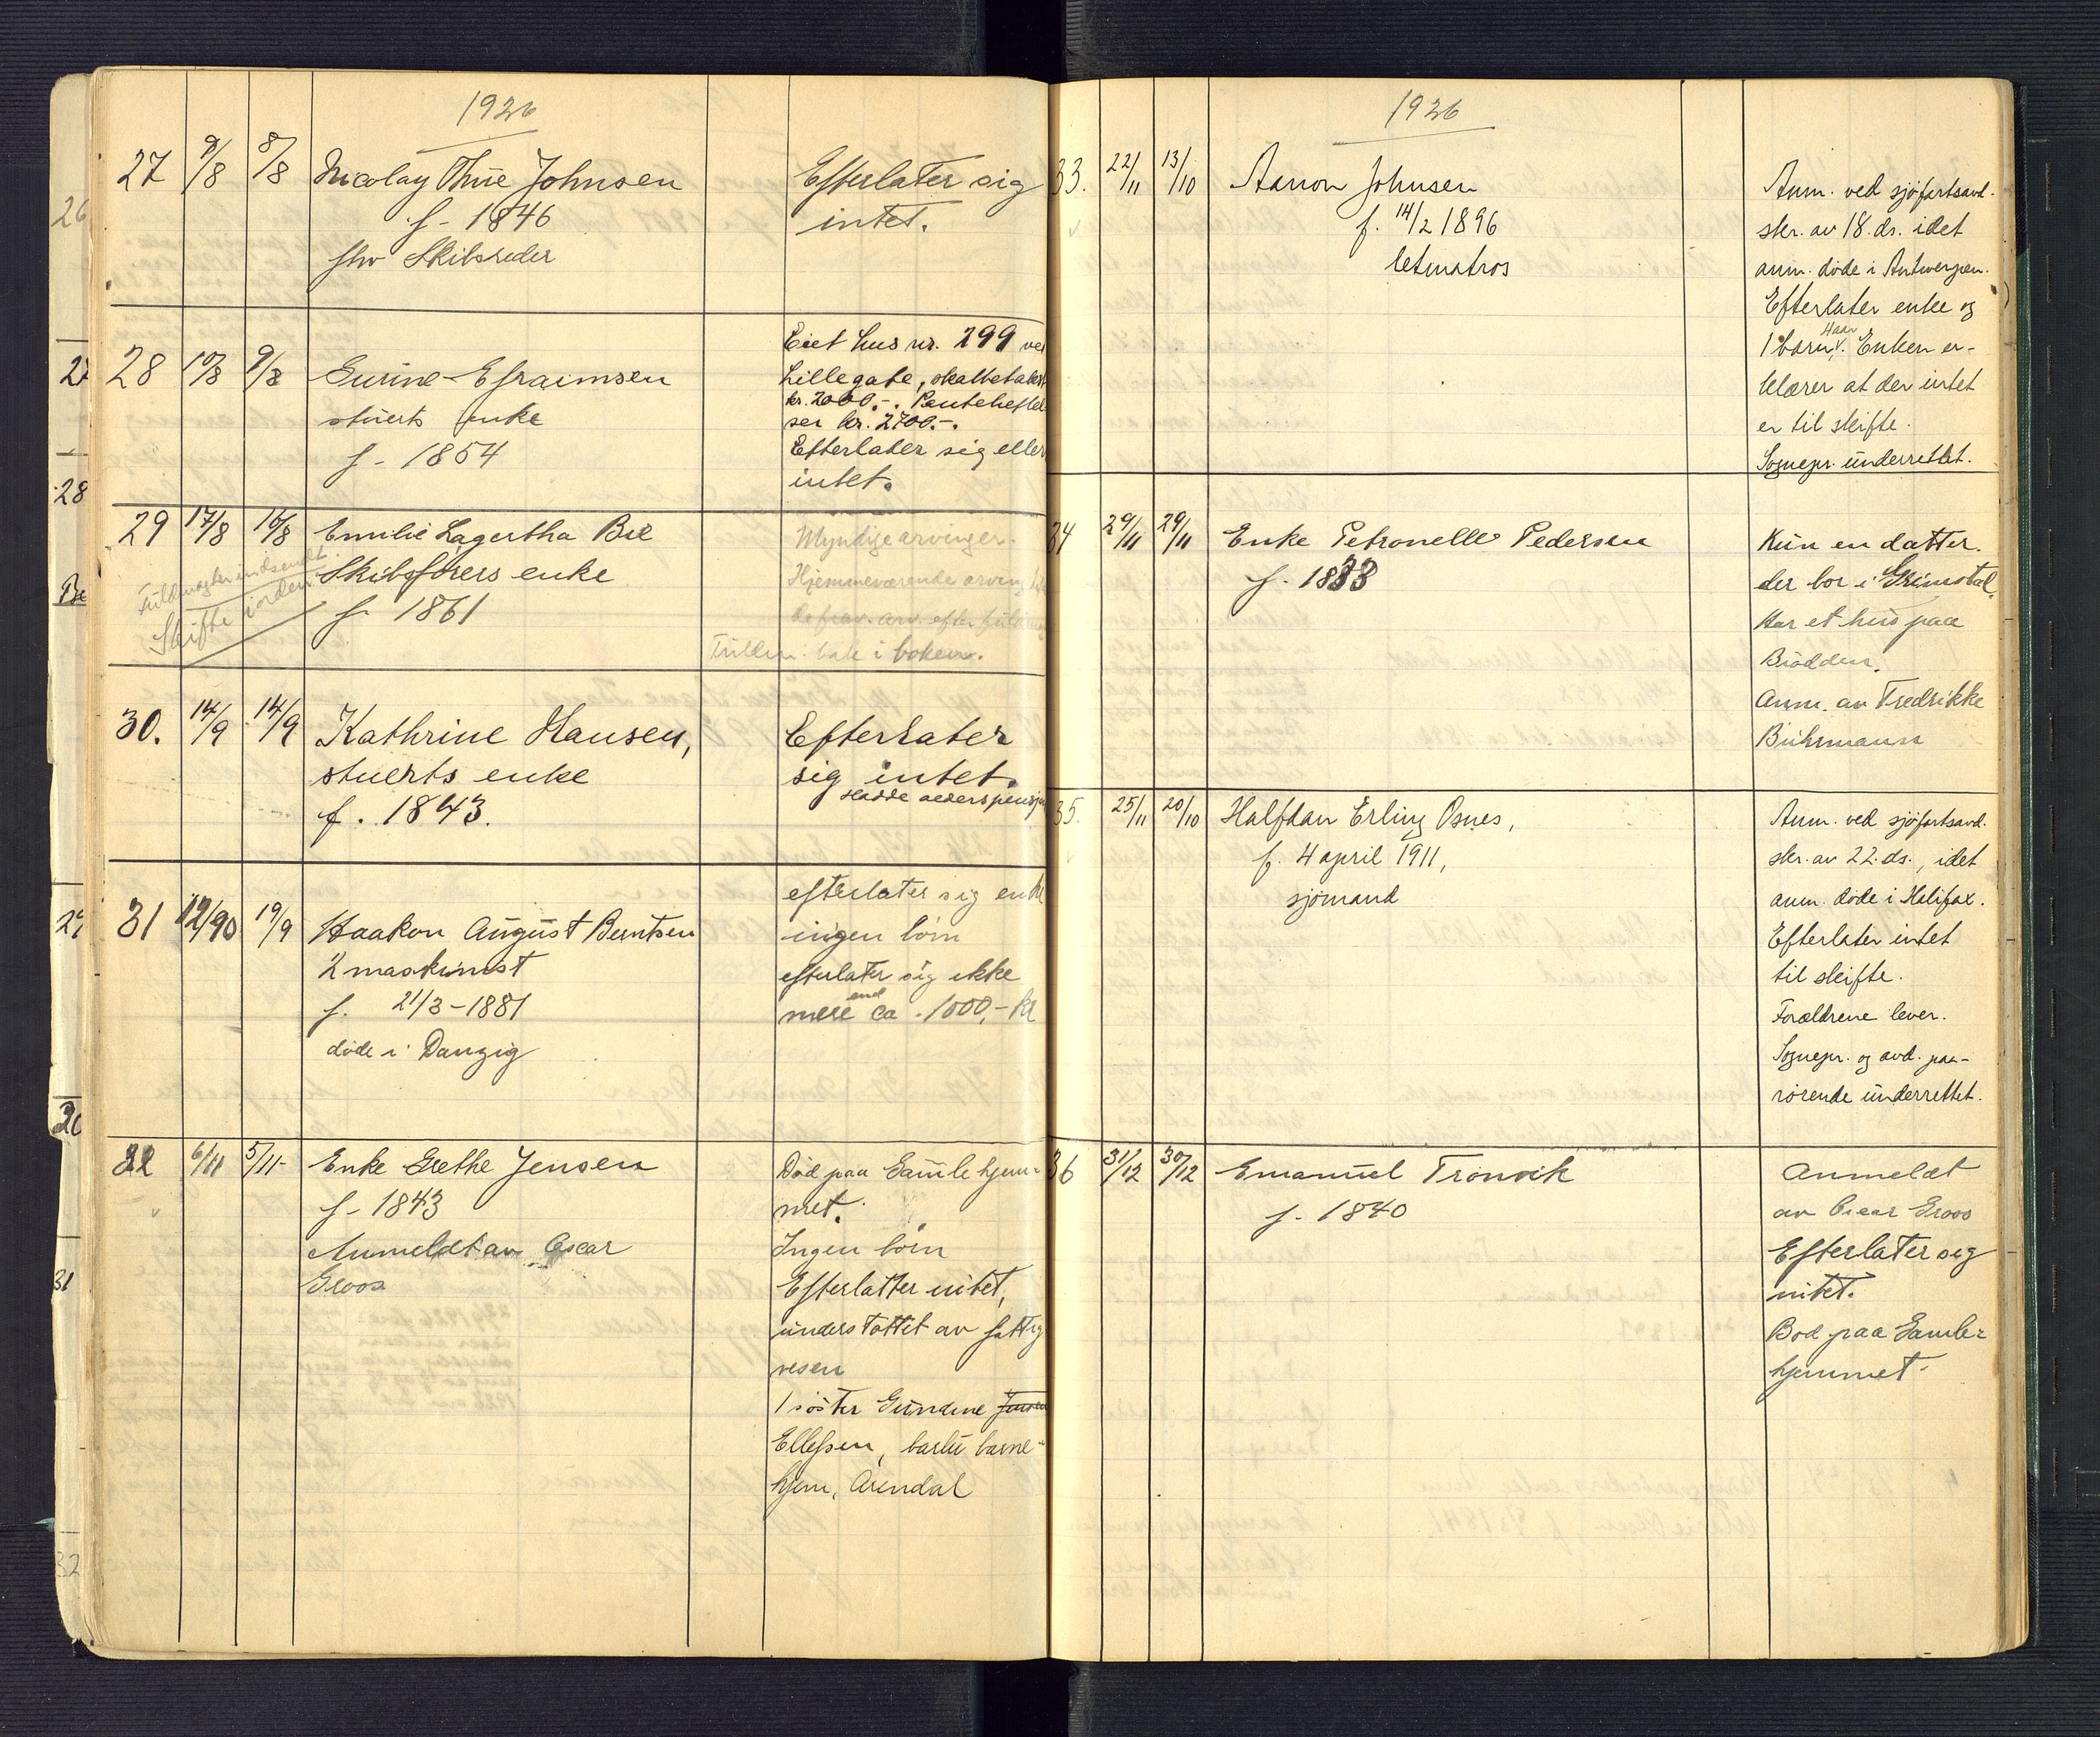 1926
27 9/8 8/8 Nicolay Thue Johnsen
f. 1846
fhv Skibsreder
Efterlater sig
intet.
28 10/8 9/8 Gurine Efraimsen
stuerts enke
f. 1854
Eiet hus nr. 299 ved
Lillegate, skattetakst
kr. 2000.-. Panteheftel-
ser kr. 2700.-.
Efterlater sig ellers
intet.
29 17/8 16/8 Emilie Lagertha Bie
Skibsførers enke
f. 1861
Fuldmagter indsendt.
Skifte i orden
Myndige arvinger.
Hjemmeværende arving
bak i boken.
30. 14/9 14/9 Kathrine Hansen,
stuerts enke
f. 1843.
Efterlater
sig intet.
Hadde alderspensjon
31 19/9 Haakon August Berntsen
2 maskinist
f. 21/3-1881
døde i Danzig
efterlater sig enke
ingen børn
efterlater sig ikke
mere end ca. 1000,- kr
32 6/11 5/11 Enke Grethe Jensen
f. 1843
Anmeldt av Oscar
Groos
Død paa Gamlehjem-
met.
Ingen børn
Efterlatter intet,
understøttet av fattig
vesen
1 søster Gundine Jensen
Ellefsen, barbu barne-
hjem, Arendal
1926
33. 22/11 13/10 Aanon Johnsen
f. 14/2 1896
letmatros
Anm. ved sjøfartsavd.
skr. av 18. ds. idet
anm. døde i Antwerpen.
Efterlater enke og
1 barn, 4 aar. Enken er-
klærer at der intet
er til skifte.
Sognepr. underrettet.
34 29/11 29/11 Enke Petronelle Pedersen
f. 1838
Kun en datter.
der bor i Grimstad.
Har et hus paa
Brødden.
Anm. av Fredrikke
Buhrmann
35. 25/11 20/10 Halfdan Erling Osnes,
f. 4 april 1911,
sjømand
Anm. ved sjøfartsavd.
skr. av 22. ds., idet
anm. døde i Halifax.
Efterlater intet
til skifte.
Forældrene lever.
Sognepr. og avd. paa-
rørende underrettet.
36 31/12 30/12 Emanuel Tronvik
f. 1840
Anmeldt
av Oscar Groos
Efterlater sig
intet.
Bod paa Gamle-
hjemmet.